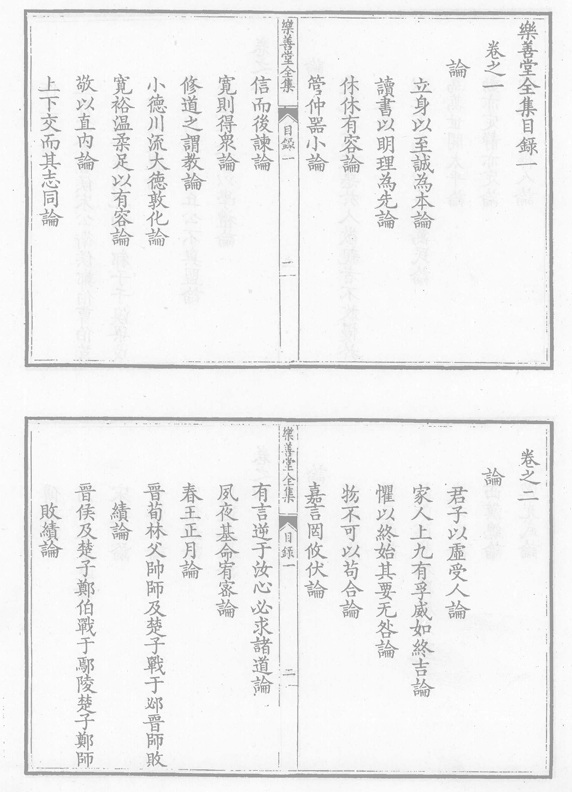 樂善堂全集目録一
卷之一
論
立身以至誠為本論
讀書以明理為先論
休休有容論
管仲器小論
樂善堂全集
目録一
一
信而後諫論
寛則得衆論
修道之謂教論
小德川流大德敦化論
寛裕溫柔足以有容論
敬以直内論
上下交而其志同論
卷之二
論
君子以虛受人論
家人上九有孚威如終吉論
懼以終始其要无咎論
物不可以苟合論
嘉言罔攸伏論
樂善堂全集
目録一
二
有言逆于汝心必求諸道論
夙夜基命宥密論
春王正月論
晉荀林父帥師及楚子戰于邲晉師敗
績論
晉侯及楚子鄭伯戰于鄢陵楚子鄭師
敗績論